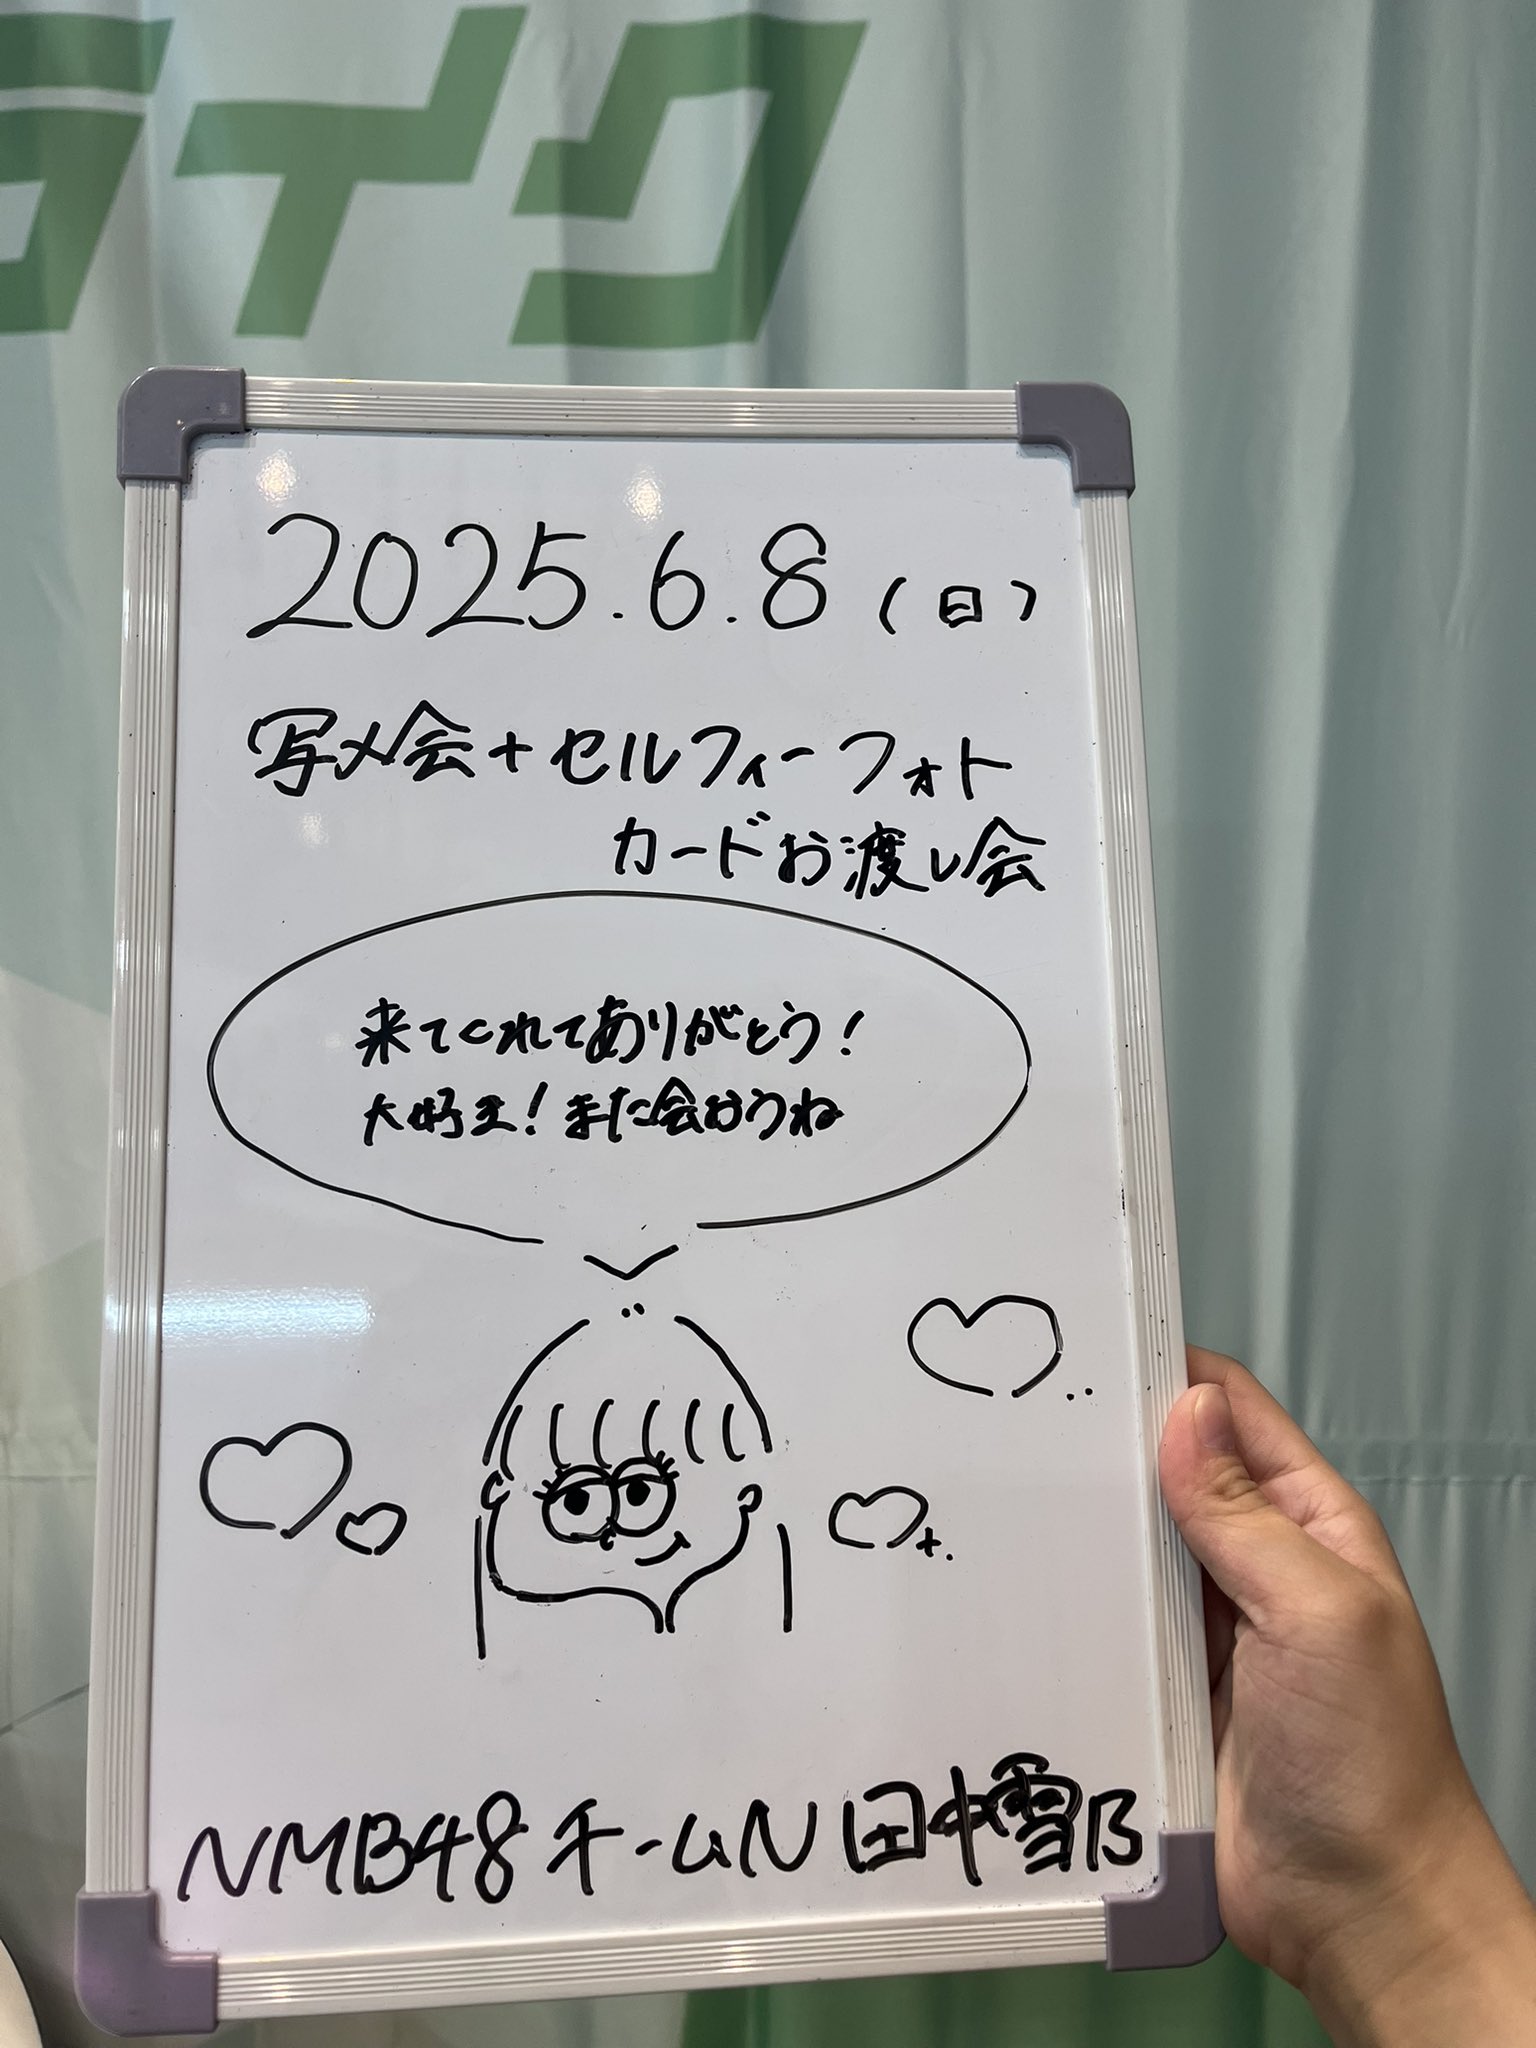 ライク
2025.6.8(日)
写メ会+セルフィーフォト
カードお渡し会
来てくれてありがとう!
大好き!また会おうね
NMB48 チームN 田中雪乃